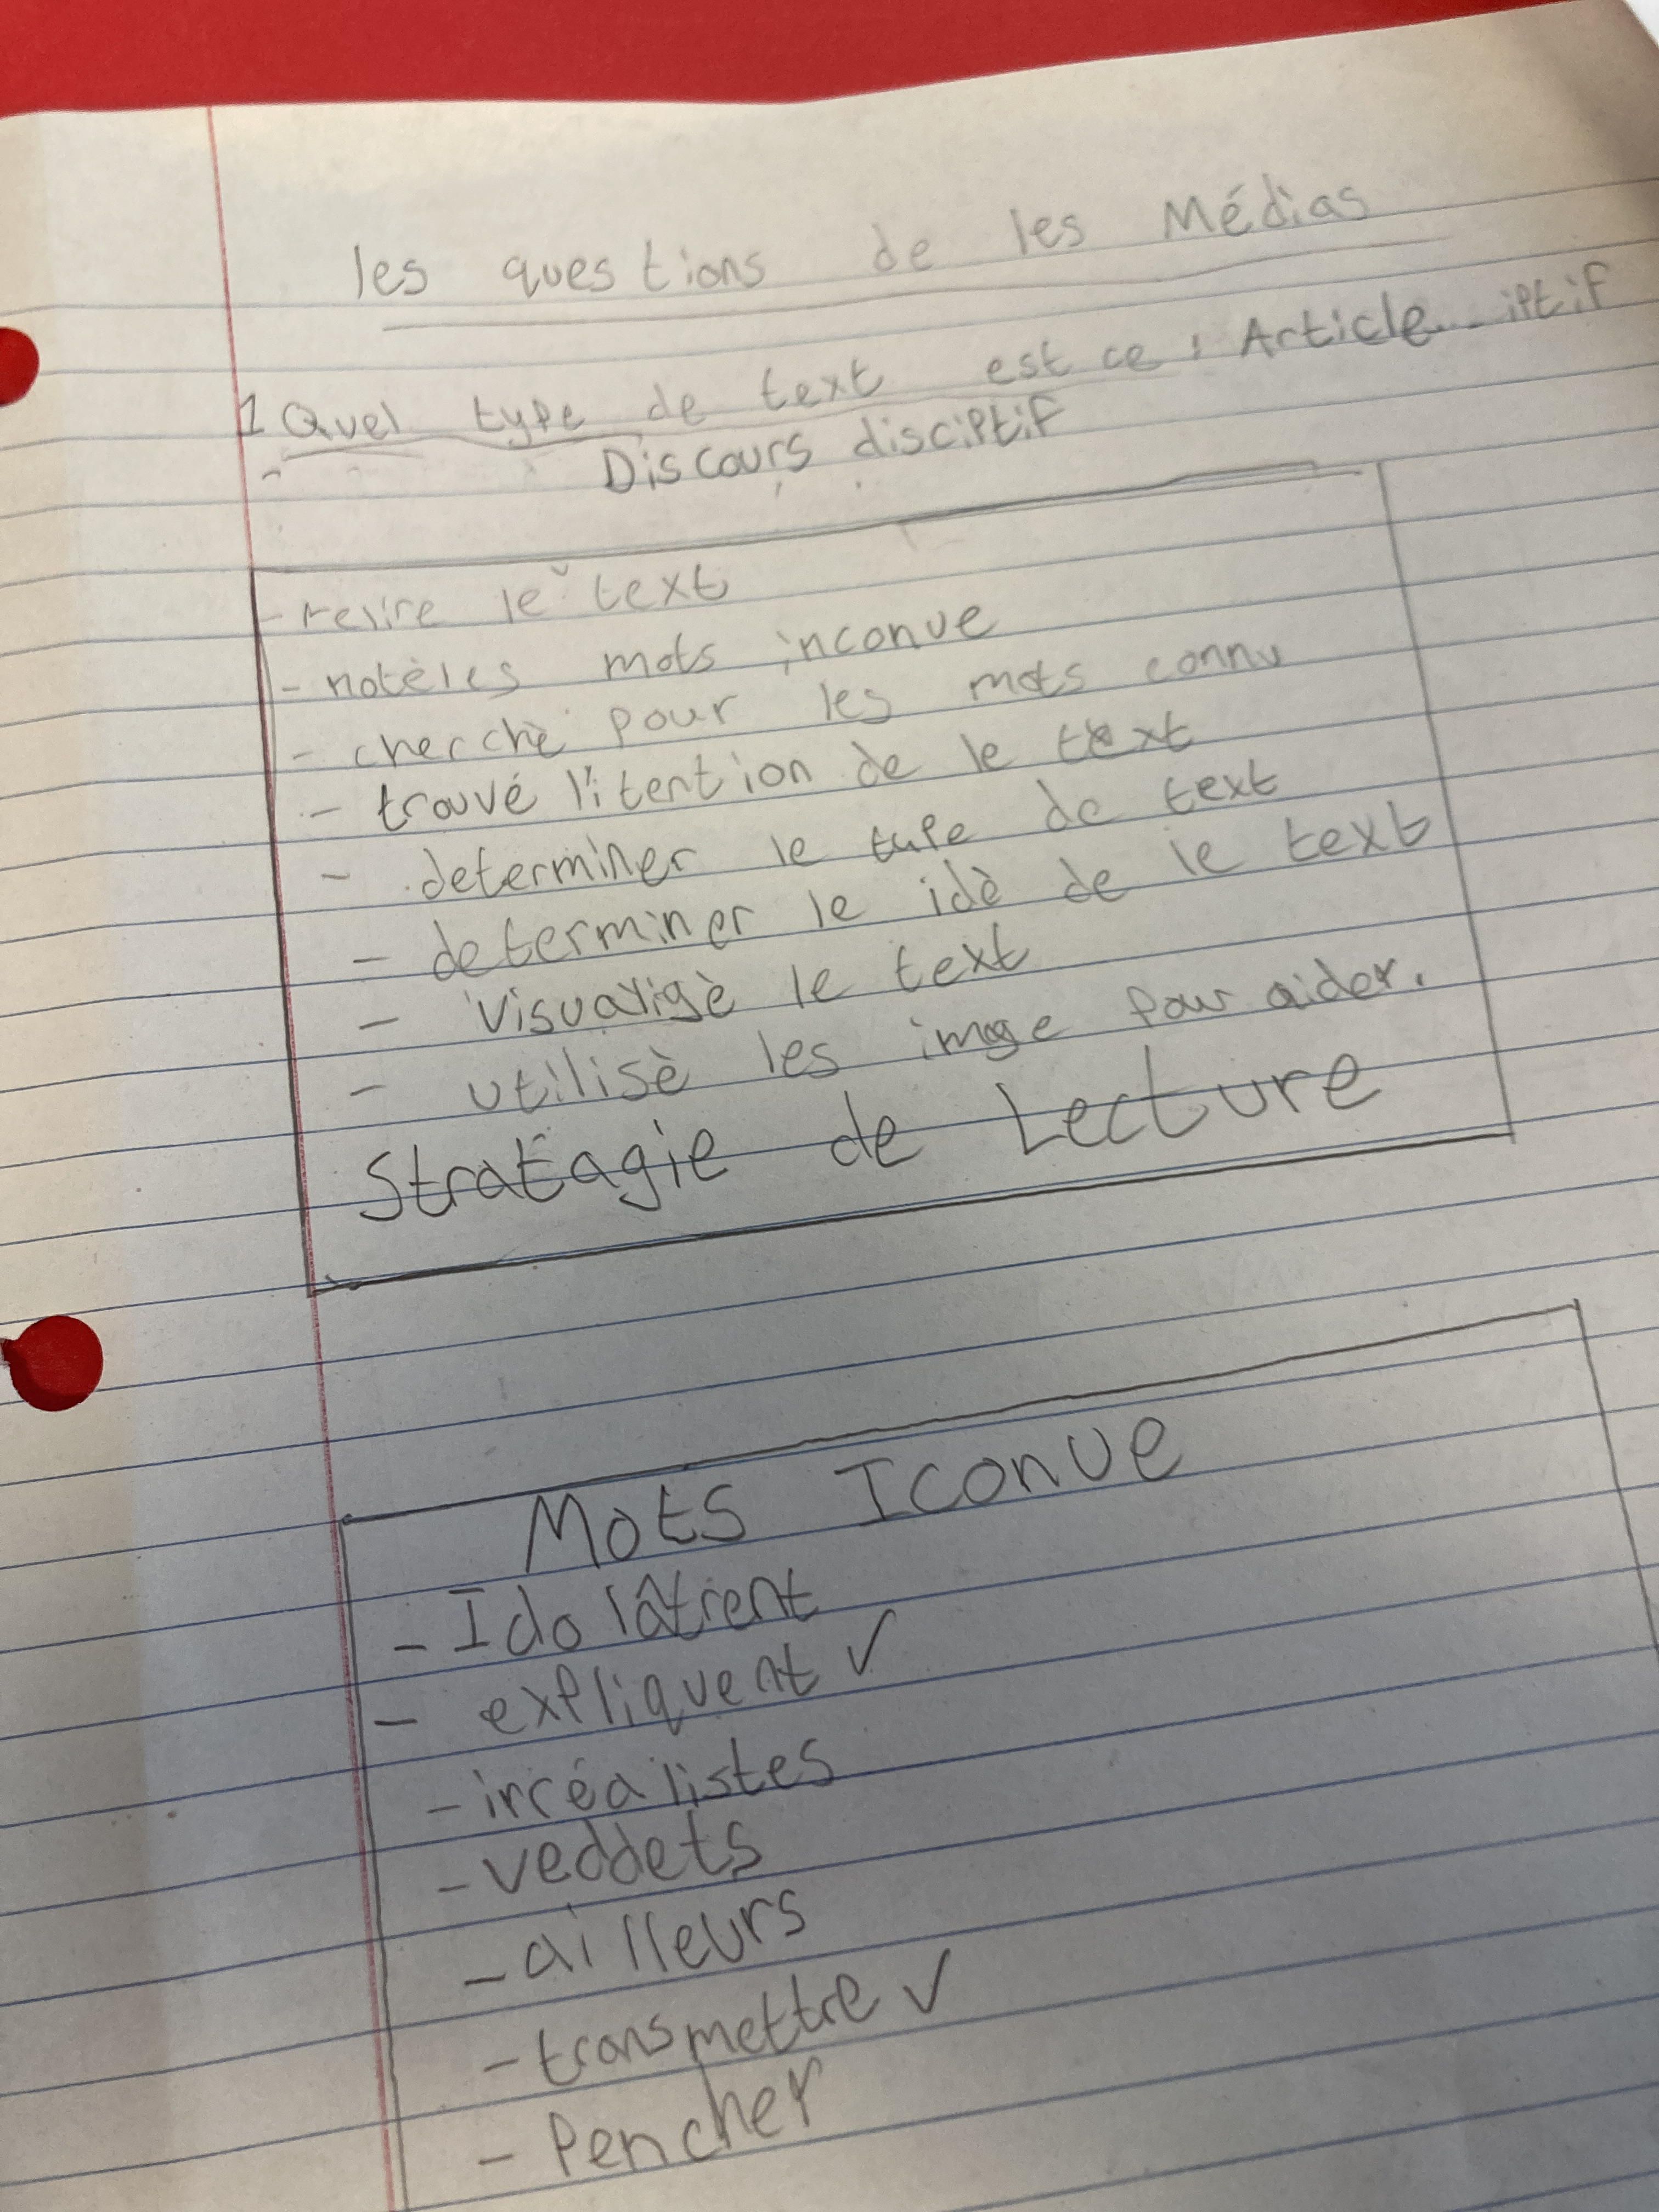 les questions de les Médias
1 Quel type de text est ce : Article
- Discours disciptif
- relire le text
- notèles mots inconue
- cherchè pour les mots connu
- trouvé l'itention de le text
- determiner le type de text
- determiner le idè de le text
- visualisè le text
- utilisè les image pour aider.
Stratagie de Lecture
Mots Iconue
- Idolâtrent
- expliquent ✓
- irréalistes
- veddets
- ailleurs
- transmettre ✓
- Pencher